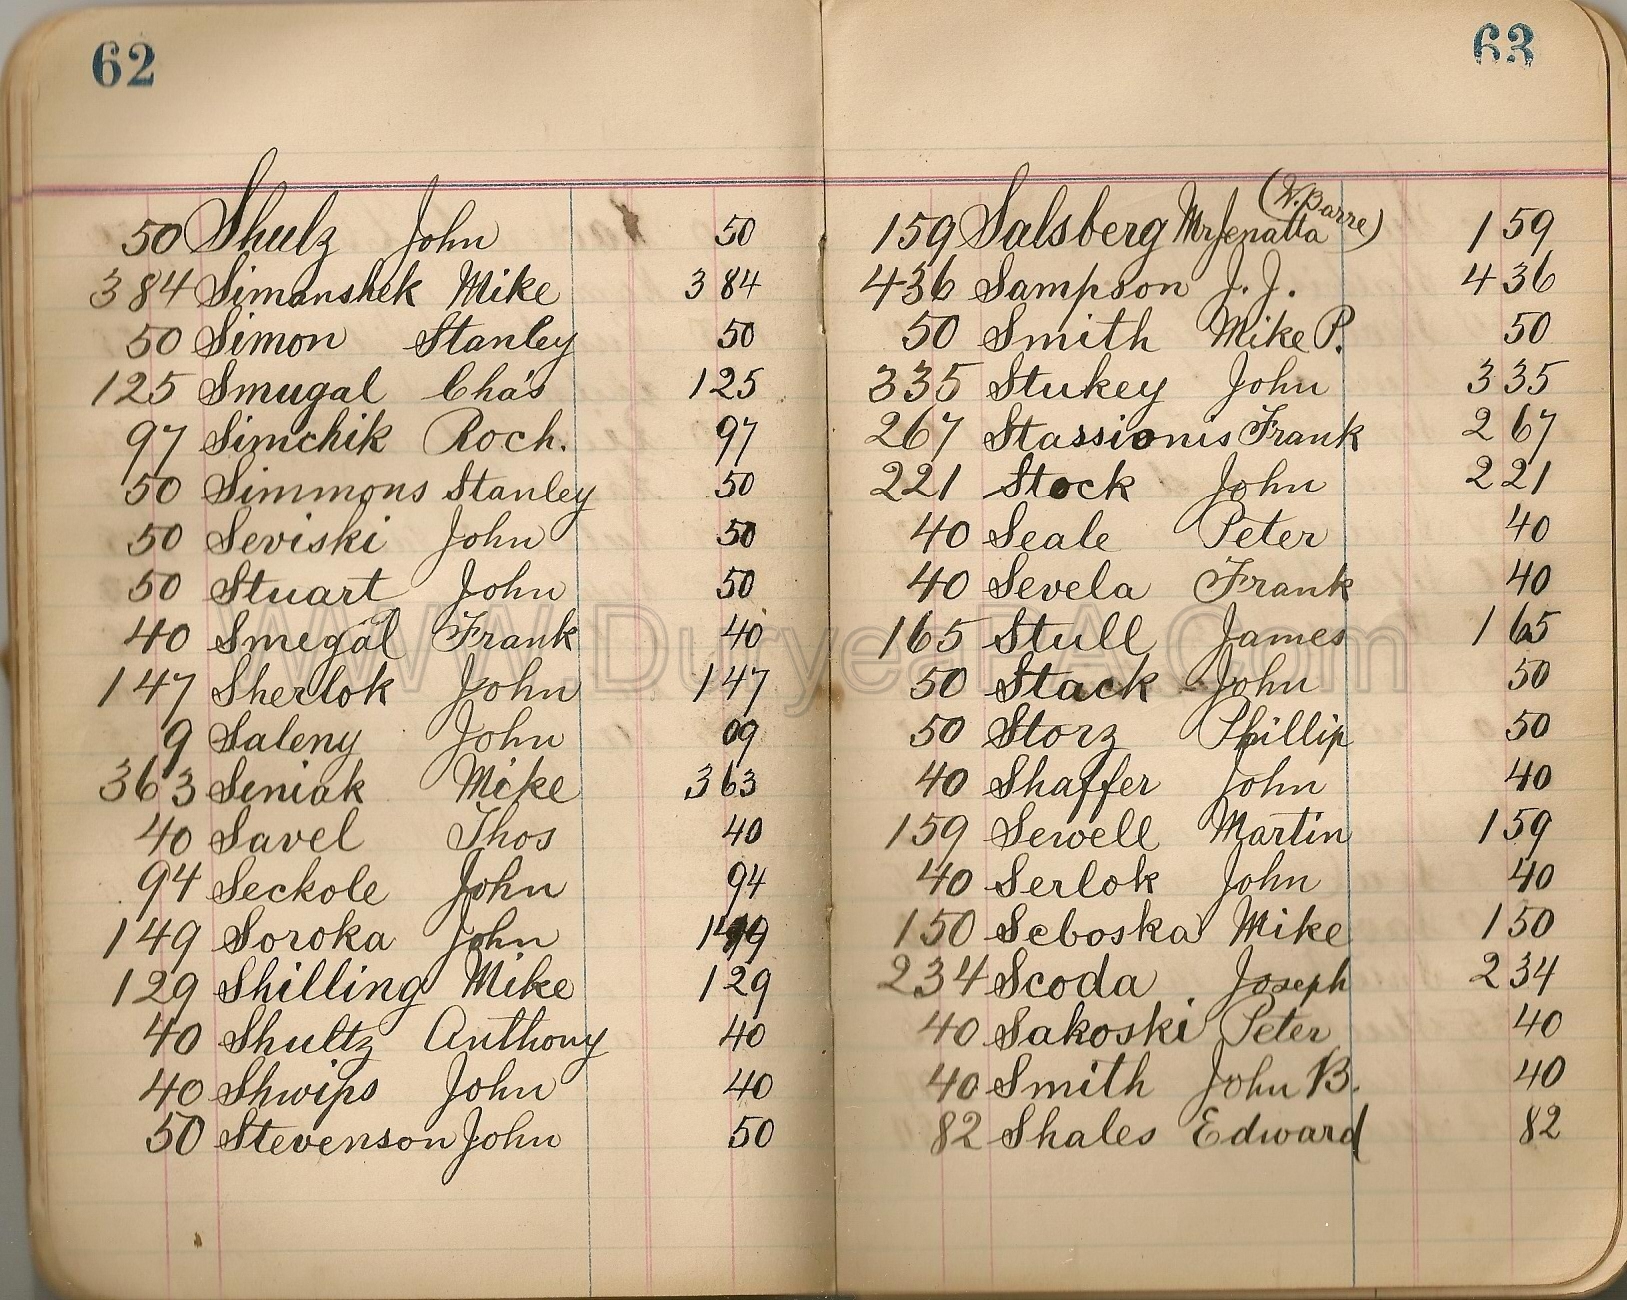 62
50 Shulz John 50
384 Simanshek Mike 384
50 Simon Stanley 50
125 Smugal Cha's 125
97 Simchik Roch. 97
50 Simmons Stanley 50
50 Seviski John 50
50 Stuart John 50
40 Smegal Frank 40
147 Sherlok John 147
9 Saleny John 09
363 Seniak Mike 363
40 Savel Thos 40
94 Seckole John 94
149 Soroka John 149
129 Shilling Mike 129
40 Shultz Anthony 40
40 Shwips John 40
50 Stevenson John 50
63
(W. Barre)
159 Salsberg Mrs 159
436 Sampson J. J. 436
50 Smith Mike P. 50
335 Stukey John 335
267 Stassionis Frank 267
221 Stock John 221
40 Seale Peter 40
40 Sevela Frank 40
165 Stull James 165
50 Stack John 50
50 Storz Phillip 50
40 Shaffer John 40
159 Sewell Martin 159
40 Serlok John 40
150 Seboska Mike 150
234 Scoda Joseph 234
40 Sakoski Peter 40
40 Smith John B. 40
82 Shales Edward 82
www.DuryeaPA.Com